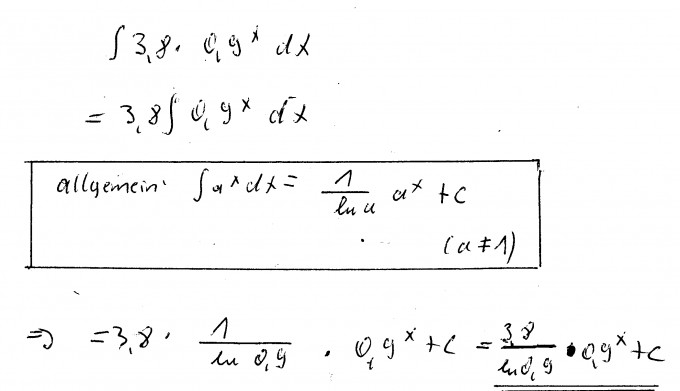 ∫ 3,8 · 0,9^x dx
= 3,8 ∫ 0,9^x dx
allgemein: ∫ a^x dx = 1/(ln a) a^x + c
(a ≠ 1)
⇒ = 3,8 · 1/(ln 0,9) · 0,9^x + c = 3,8/(ln 0,9) · 0,9^x + c